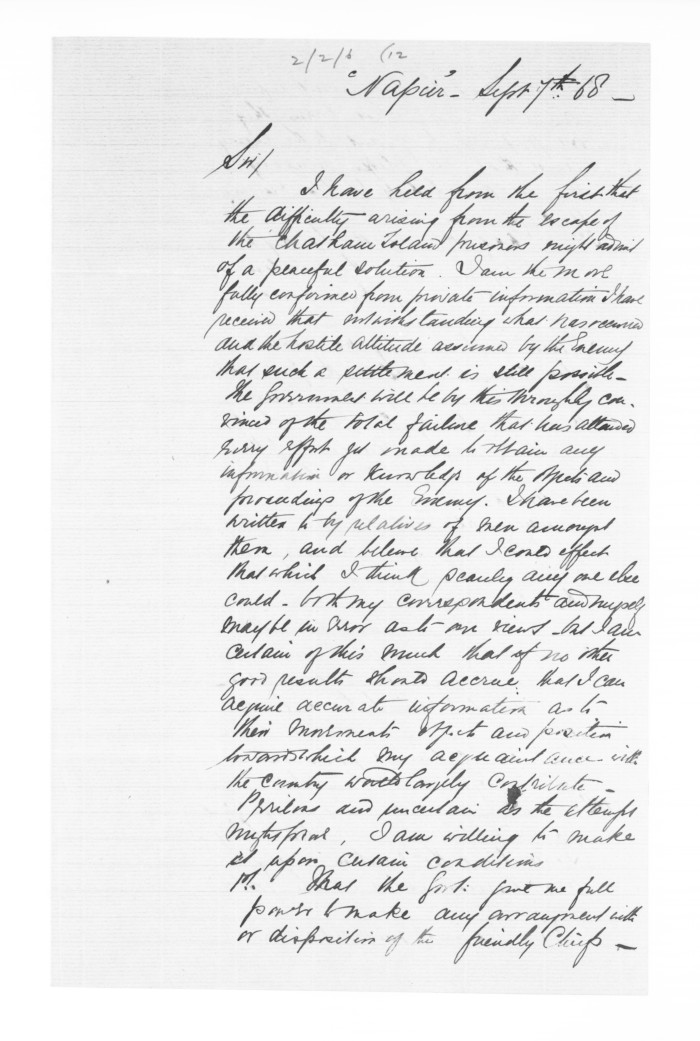 2/2/6 (12
"Napier" - Sept. 7th 68 -
Sir/
I have held from the first that
the difficulty arising from the escape of
the Chatham Island prisoners might admit
of a peaceful solution. I am the more
fully confirmed from private information I have
received that notwithstanding what has occurred
and the hostile attitude assumed by the Enemy
that such a settlement is still possible -
The Government will be by this throughly con-
vinced of the total failure that has attended
every effort yet made to obtain any
information or knowledge of the objects and
proceedings of the Enemy. I have been
written to by relatives of men amongst
them, and believe that I could effect
that which I think scarcely any one else
could - both my correspondents and myself
may be in error as to our views - but I am
certain of this much that if no other
good results should accrue, that I can
acquire accurate information as to
their movements objects and position
towards which my acquaintance with
the country would largely contribute -
Perilous and uncertain as the attempt
might prove, I am willing to make
it upon certain conditions
1st. That the Govt: give me full
power to make any arrangment with
or disposition of the friendly Chiefs -